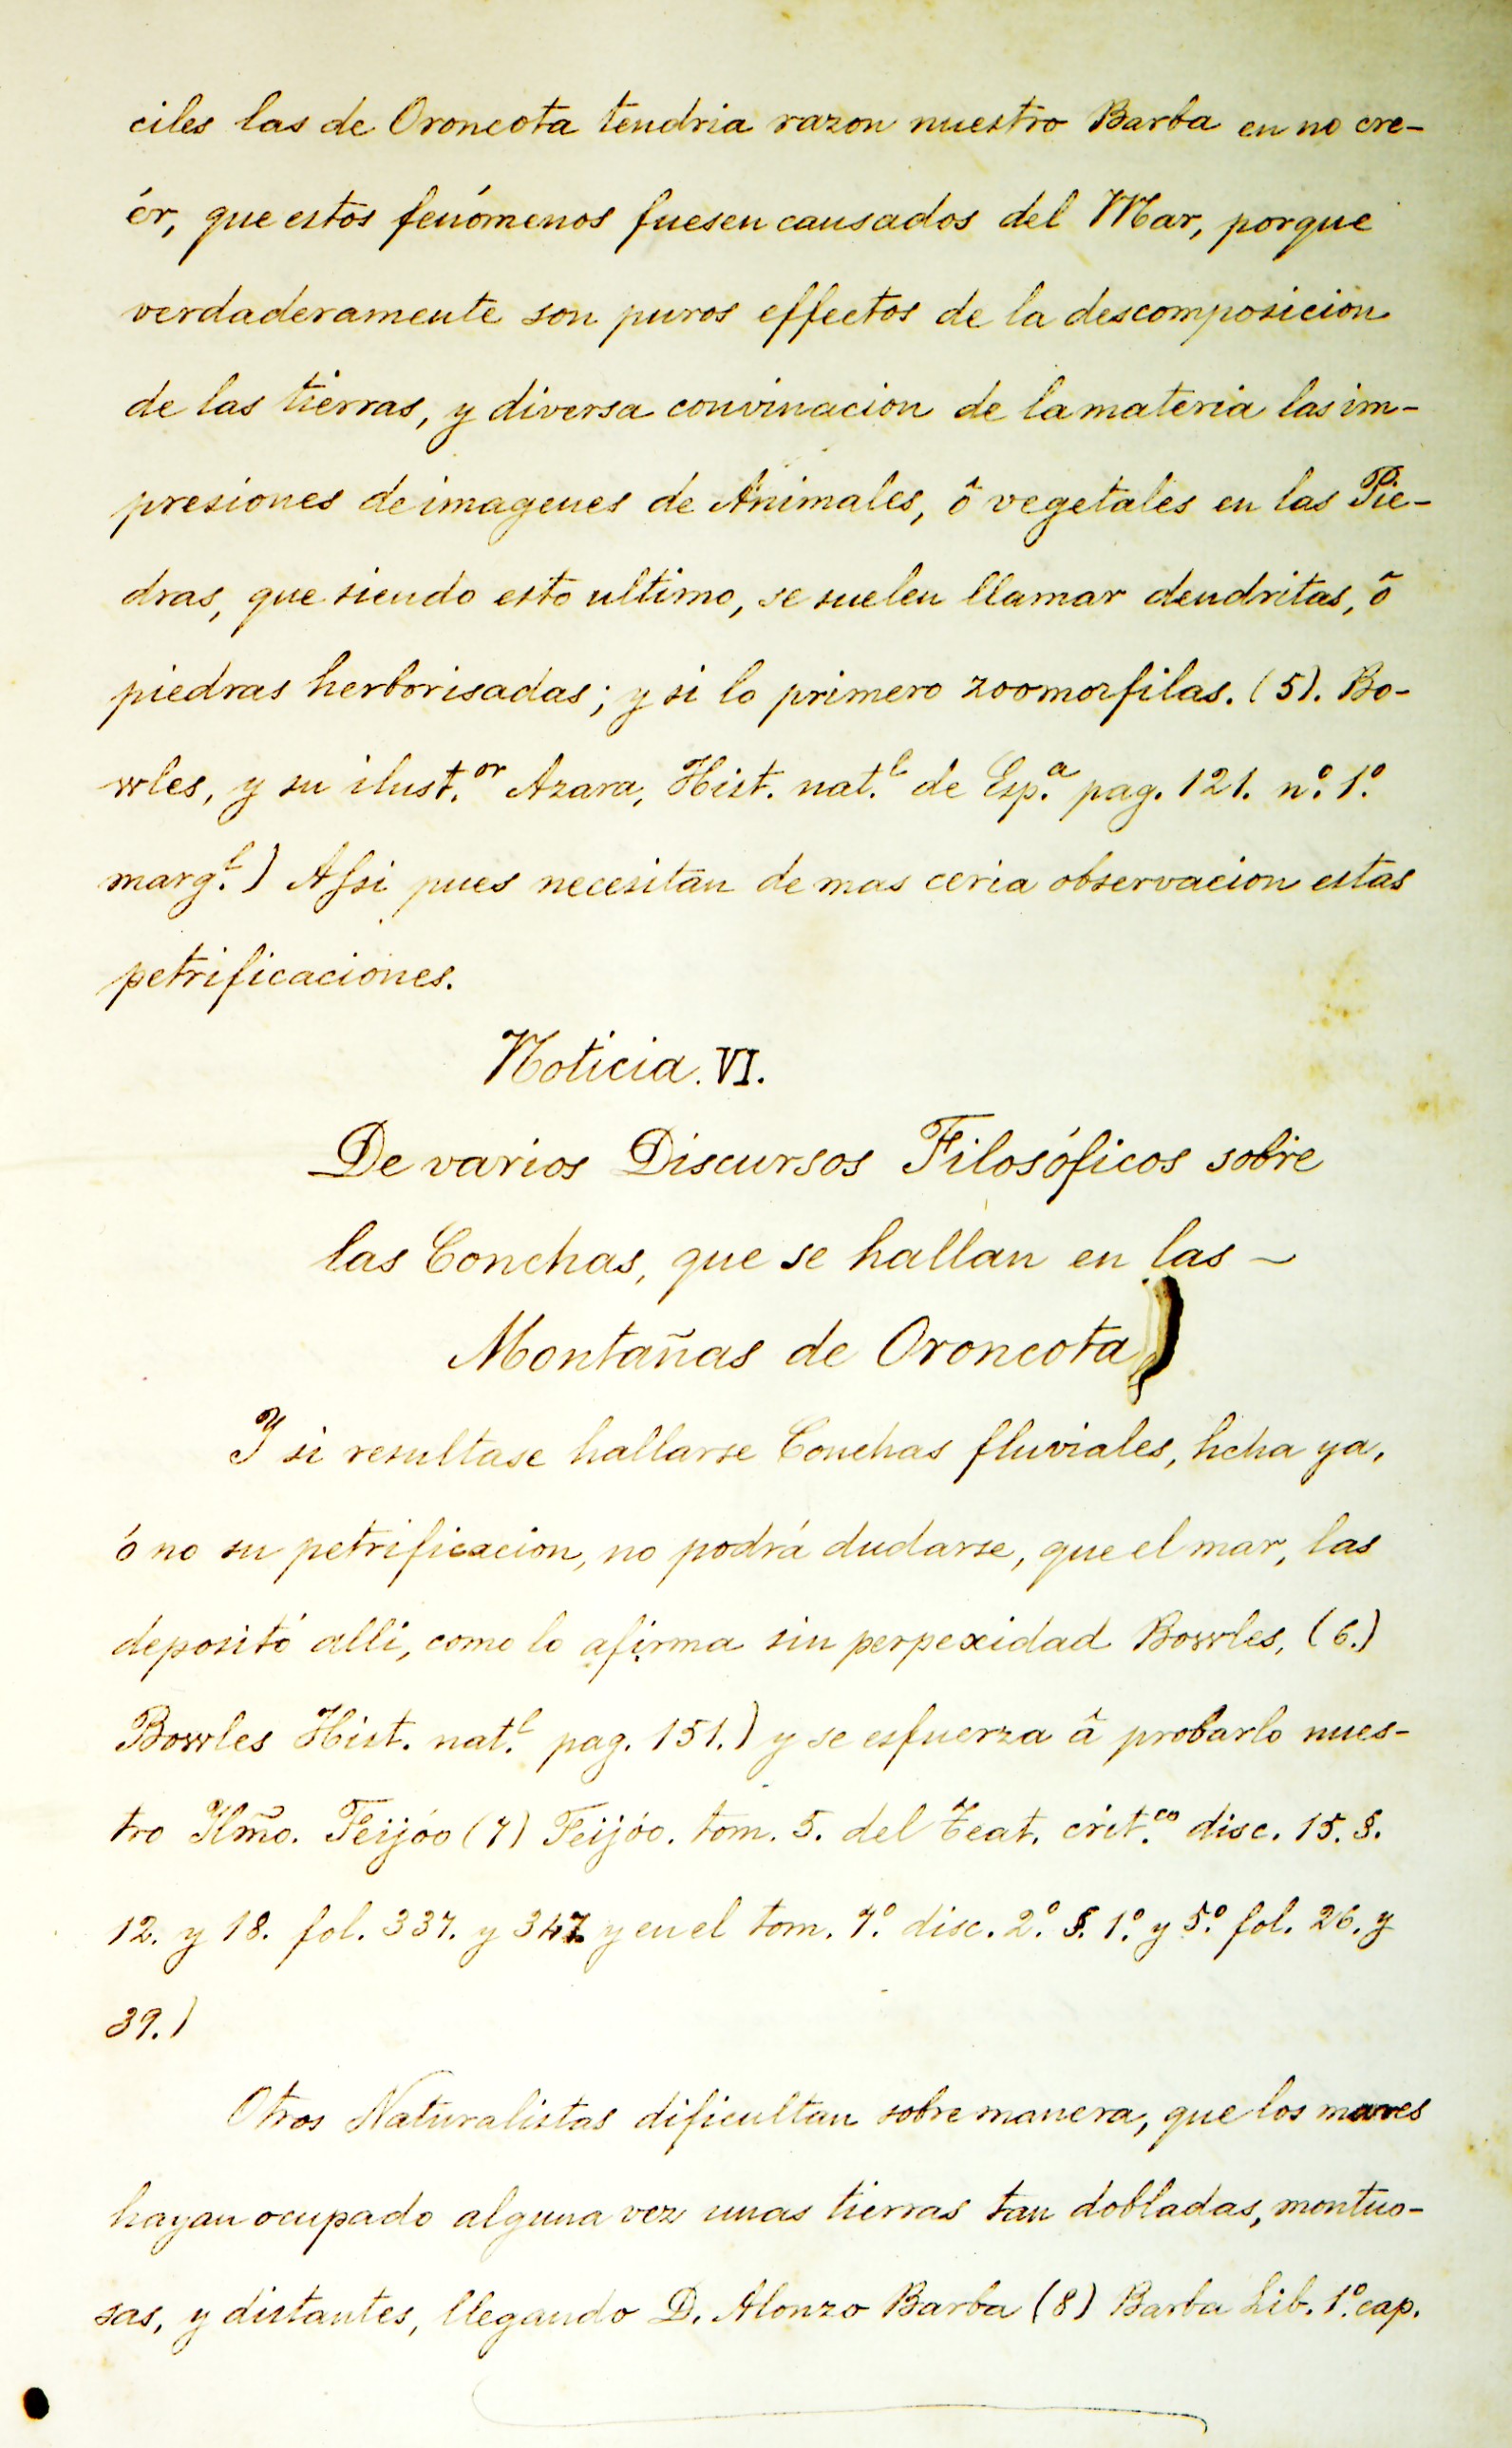 ciles las de Oroncota tendria razon nuestro Barba en no cre-
ér, que estos fenómenos fuesen causados del Mar, porque
verdaderamente son puros effectos de la descomposicion
de las tierras, y diversa convinacion de la materia las im-
presiones de imagenes de Animales, ô vegetales en las Pie-
dras, que siendo esto ultimo, se suelen llamar dendritas, ô
piedras herborisadas; y si lo primero zoomorfilas. (5). Bo-
wles, y su ilust.or Azara, Hist. nat.l de Esp.a pag. 121. nº. 1º.
marg.l) Assi pues necesitan de mas ceria observacion estas
petrificaciones.
Noticia. VI.
De varios Discursos Filosóficos sobre
las Conchas, que se hallan en las ~
Montañas de Oroncota)
Y si resultase hallarse Conchas fluviales, hcha ya,
ó no su petrificacion, no podrá dudarse, que el mar, las
depositó alli, como lo afirma sin perpexidad Bowles, (6.)
Bowles Hist. nat.l pag. 151.) y se esfuerza â probarlo nues-
tro Ylmõ. Feijóo (7) Feijóo. tom. 5. del Teat. crit.co disc. 15. §.
12. y 18. fol. 337. y 347. y en el tom. 7.º disc. 2.º §. 1.º y 5.º fol. 26. y
39.)
Otros Naturalistas dificultan sobre manera, que los mares
hayan ocupado alguna vez unas tierras tan dobladas, montuo-
sas, y distantes, llegando D. Alonzo Barba (8) Barba Lib. 1.º cap.